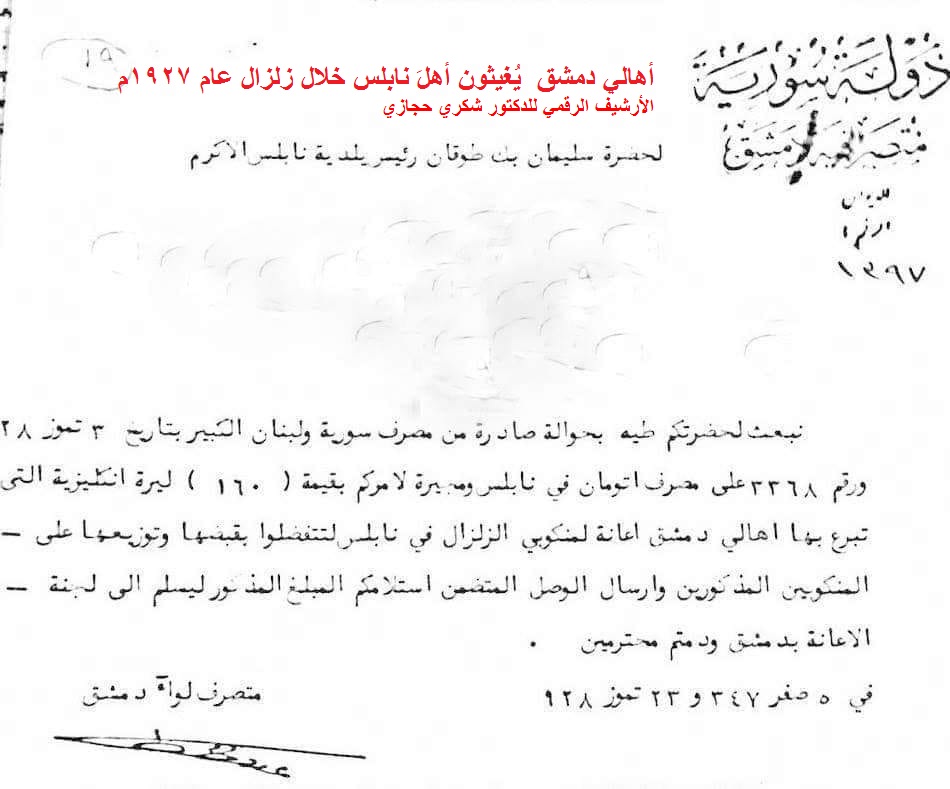 ١٩
أهالي دمشق يُغيثون أهلَ نابلس خلال زلزال عام ١٩٢٧م
الأرشيف الرقمي للدكتور شكري حجازي
دولة سورية
متصرفية لواء دمشق
الديوان
الرقم
١٣٩٧
لحضرة سليمان بك طوقان رئيس بلدية نابلس الاكرم
نبعث لحضرتكم طيه بحوالة صادرة من مصرف سورية ولبنان الكبير بتاريخ ٣ تموز ٢٨
ورقم ٣٣٦٨ على مصرف اتومان في نابلس ومجيرة لامركم بقيمة ( ١٦٠ ) ليرة انكليزية التى
تبرع بها اهالي دمشق اعانة لمنكوبي الزلزال في نابلس لتتفضلوا بقبضها وتوزيعها على –
المنكوبين المذكورين وارسال الوصل المتضمن استلامكم المبلغ المذكور ليسلم الى لجنة –
الاعانة بدمشق ودمتم محترمين .
في ٥ صفر ٣٤٧ و ٢٣ تموز ٩٢٨
متصرف لواء دمشق